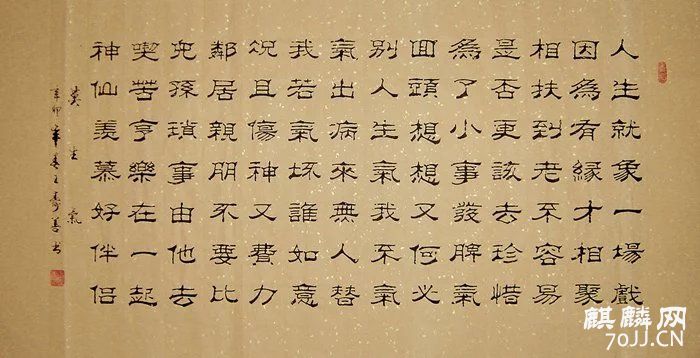 人生就象一場戲
因為有緣才相聚
相扶到老不容易
是否更該去珍惜
為了小事發脾氣
回頭想想又何必
別人生氣我不氣
氣出病來無人替
我若氣坏誰如意
况且傷神又費力
鄰居親朋不要比
兒孫瑣事由他去
喫苦享樂在一起
神仙羨慕好伴侶
莫生氣
辛卯年春王壽善书
麒麟网
70JJ.CN